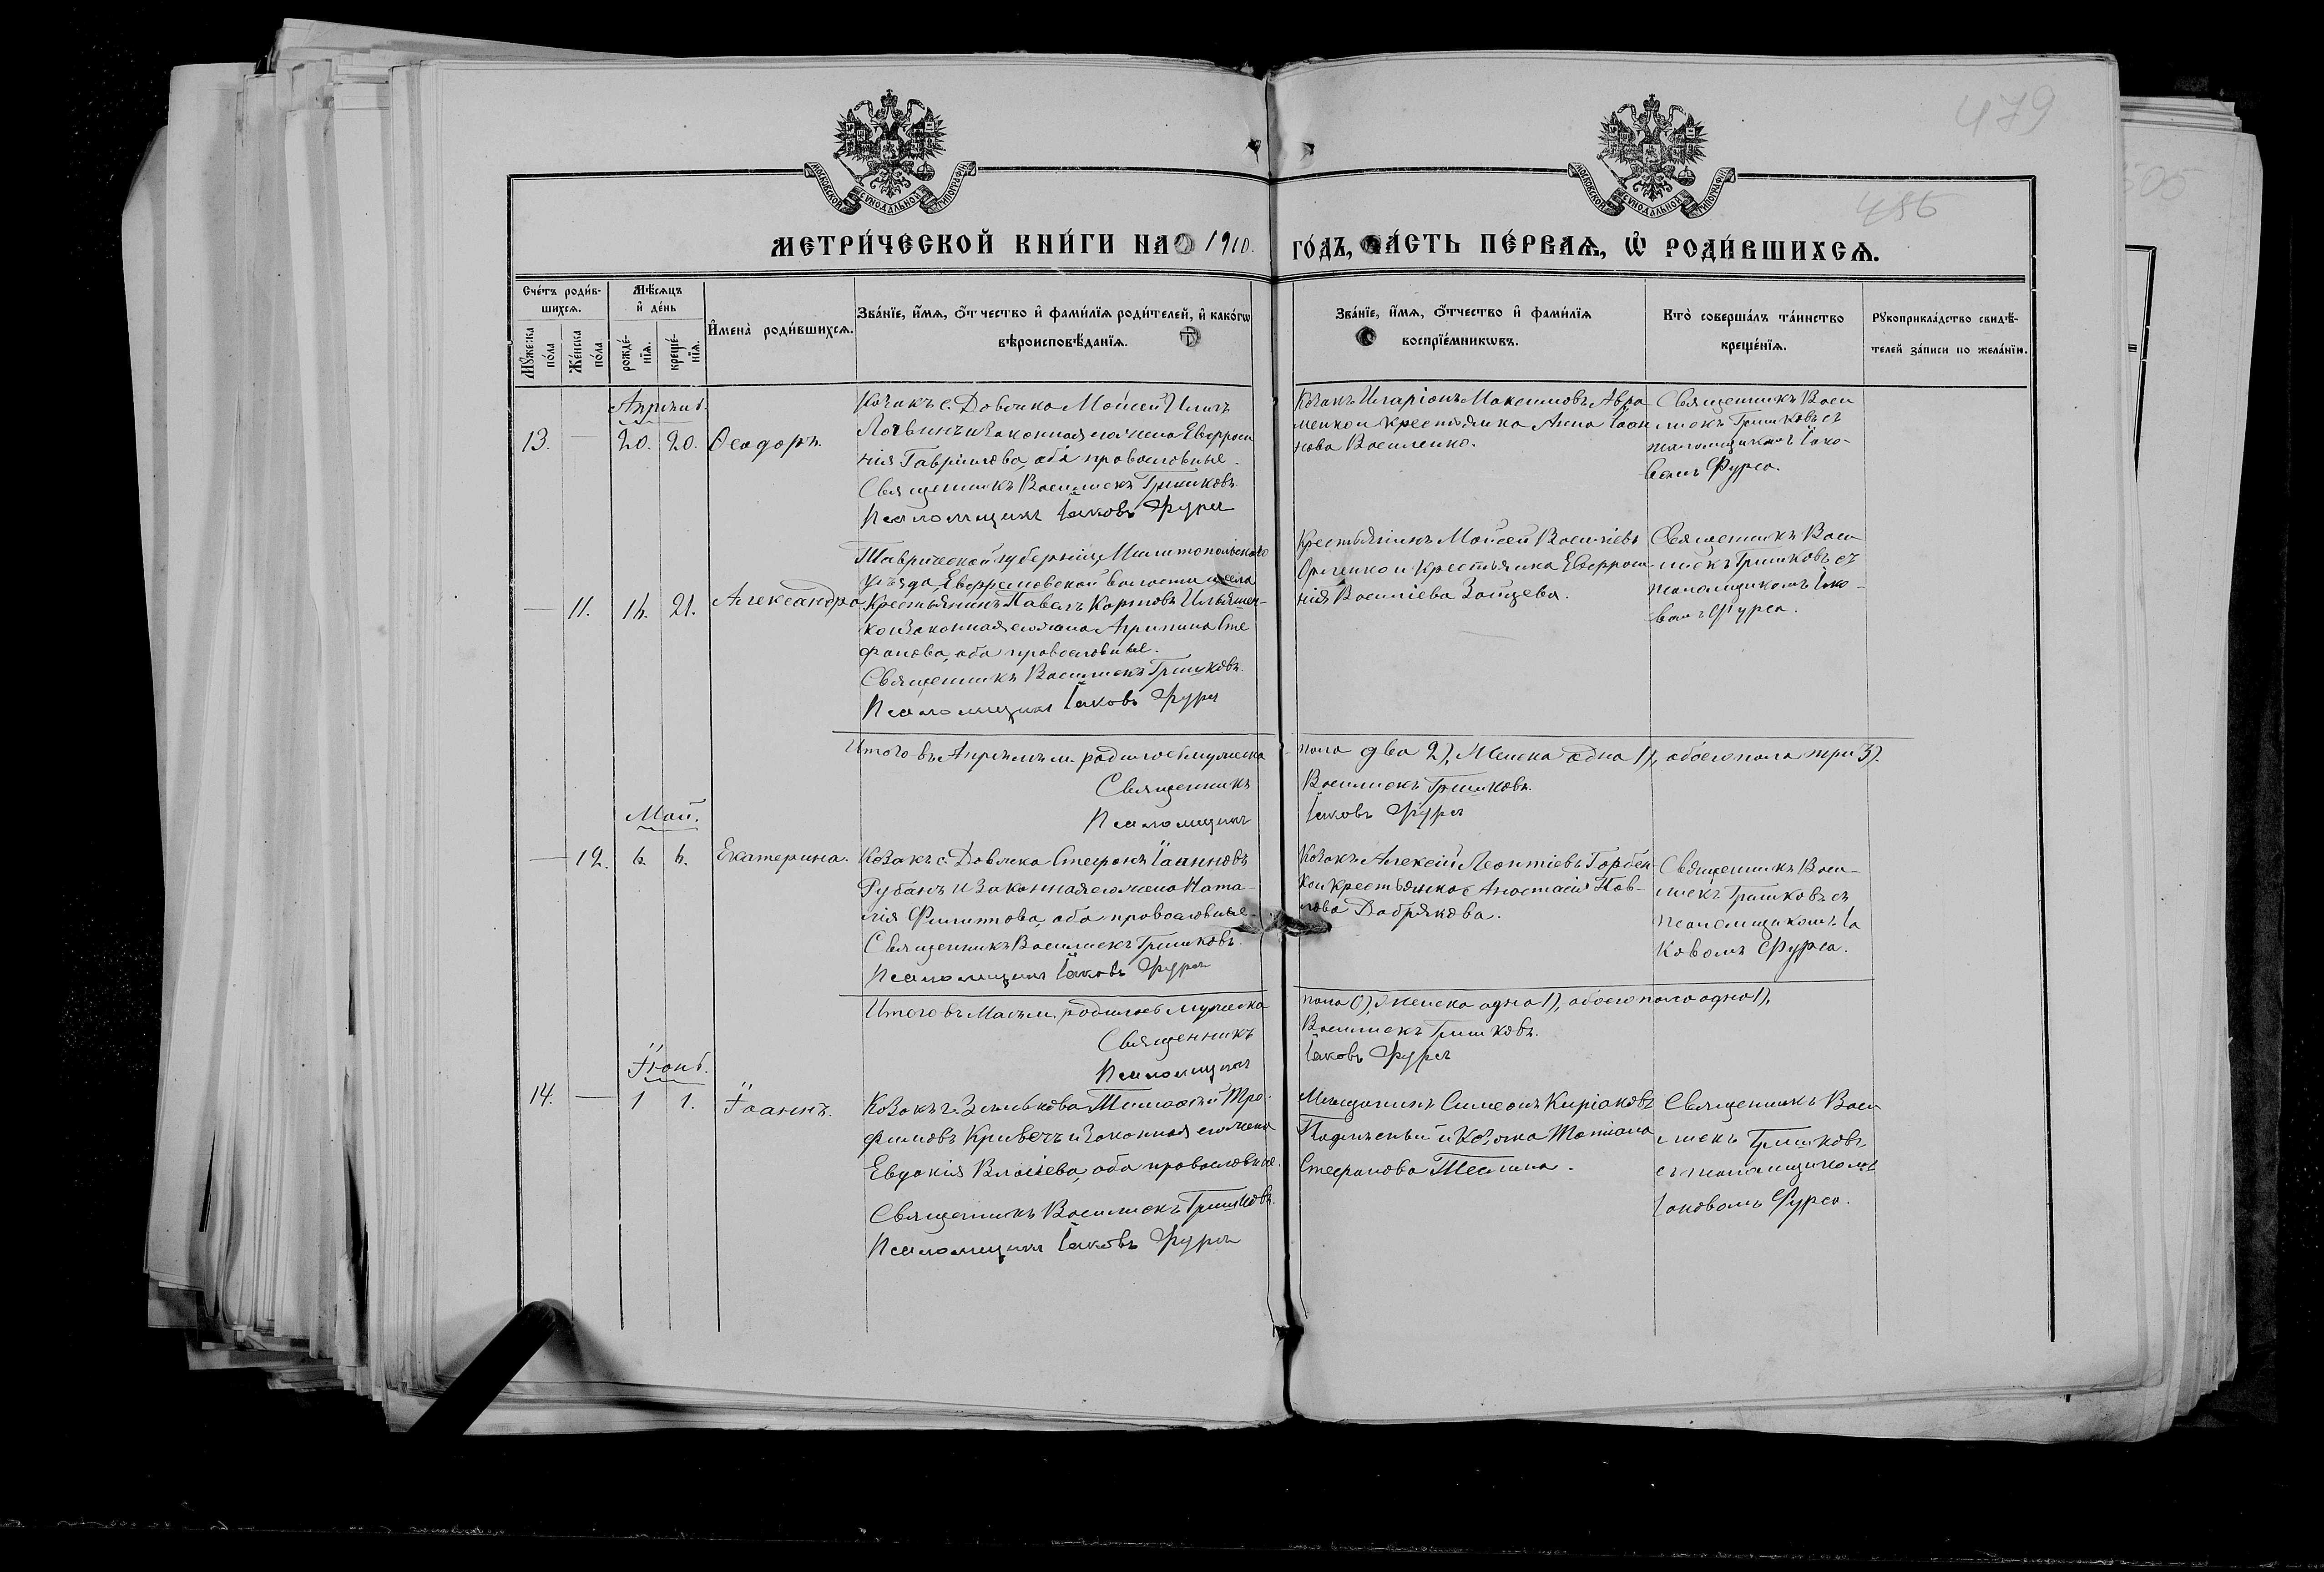 479
486
505
МОСКОВСКОЙ СѴНОДАЛЬНОЙ ТИПОГРАФІИ
МОСКОВСКОЙ СѴНОДАЛЬНОЙ ТИПОГРАФІИ
МЕТРИ́ЧЕСКОЙ КНИ́ГИ НА 1910. ГО́ДЪ, ЧА́СТЬ ПЕ́РВАѦ, Ѡ҆ РОДИ́ВШИХСѦ.
Сче́тъ роди́в-
шихсѧ.
Мꙋ́жеска по́ла
Же́нска по́ла
Мѣ́сѧцъ
и҆ де́нь
рожде́-
нїѧ.
креще́-
нїѧ.
И҆мена̀ роди́вшихсѧ.
Зва́нїе, и҆́мѧ, ѻ҆́тчество и҆ фами́лїѧ роди́телей, и҆ како́гѡ
вѣроисповѣ́данїѧ.
Зва́нїе, и҆́мѧ, ѻ҆́тчество и҆ фами́лїѧ
воспрїе́мникѡвъ.
Кто̀ соверша́лъ та́инство
креще́нїѧ.
Рꙋкоприкла́дство свидѣ́-
телей за́писи по жела́нїю.
Апрѣль.
13. — 20. 20. Ѳеодоръ.
Козакъ с. Довжика Моисей Иличъ
Логвинъ и законная его жена Евфроси
нія Гавріилова, оба православные.
Священникъ Василискъ Гришковъ
Псаломщикъ Іаковъ Фурса
Козакъ Иларіонъ Максимовъ Авра
менко и крестьянка Анна Іоан
нова Василенко.
Священникъ Васи
лискъ Гришковъ съ
псаломщикомъ Іако-
вомъ Фурса.
— 11. 16. 21. Александра
Таврической губерніи, Мелитопольского
уѣзда, Ефремовской волости и села
Крестьянинъ Павелъ Карповъ Ильяшен-
ко и законная его жена Агрипина Сте
фанова, оба православные.
Священникъ Василискъ Гришковъ.
Псаломщикъ Іаковъ Фурса
Крестьянинъ Моисей Васильевъ
и Крестьянка Евфроси-
нія Васильева Зайцева.
Священникъ Васи
лискъ Гришковъ съ
псаломщикомъ Іако-
вомъ Фурса.
Итого въ Апрѣлѣ м. родилось мужеска пола два 2), Женска одна 1), обоего пола три 3).
Священникъ Василискъ Гришковъ.
Псаломщикъ Іаковъ Фурса
Май.
— 12. 6. 6. Екатерина.
Козакъ с. Довжика Стефанъ Іоанновъ
Рубанъ и законная его жена Ната-
лія Филиппова, оба православные.
Священникъ Василискъ Гришковъ.
Псаломщикъ Іаковъ Фурса
Козакъ Алексій Леонтіевъ Горбен
ко и крестьянка Анастасія Пав-
лова Добрякова.
Священникъ Васи-
лискъ Гришковъ съ
псаломщикомъ Іа
ковомъ Фурса.
Итого въ Маѣ м. родилось мужеска пола 0), женска одна 1), обоего пола одна 1),
Священникъ Василискъ Гришковъ.
Псаломщикъ Іаковъ Фурса
Іюнь.
14. — 1 1. Іоаннъ.
Козакъ г. Зенькова Тимофей Тро-
фимовъ Кривечъ и законная его жена
Евдокія Власіева, оба православные.
Священникъ Василискъ Гришковъ.
Псаломщикъ Іаковъ Фурса
Мещанинъ Симеонъ Киріаковъ
и Козачка Татіана
Стефанова
Священникъ Васи
лискъ Гришковъ
съ псаломщикомъ
Іаковомъ Фурса.